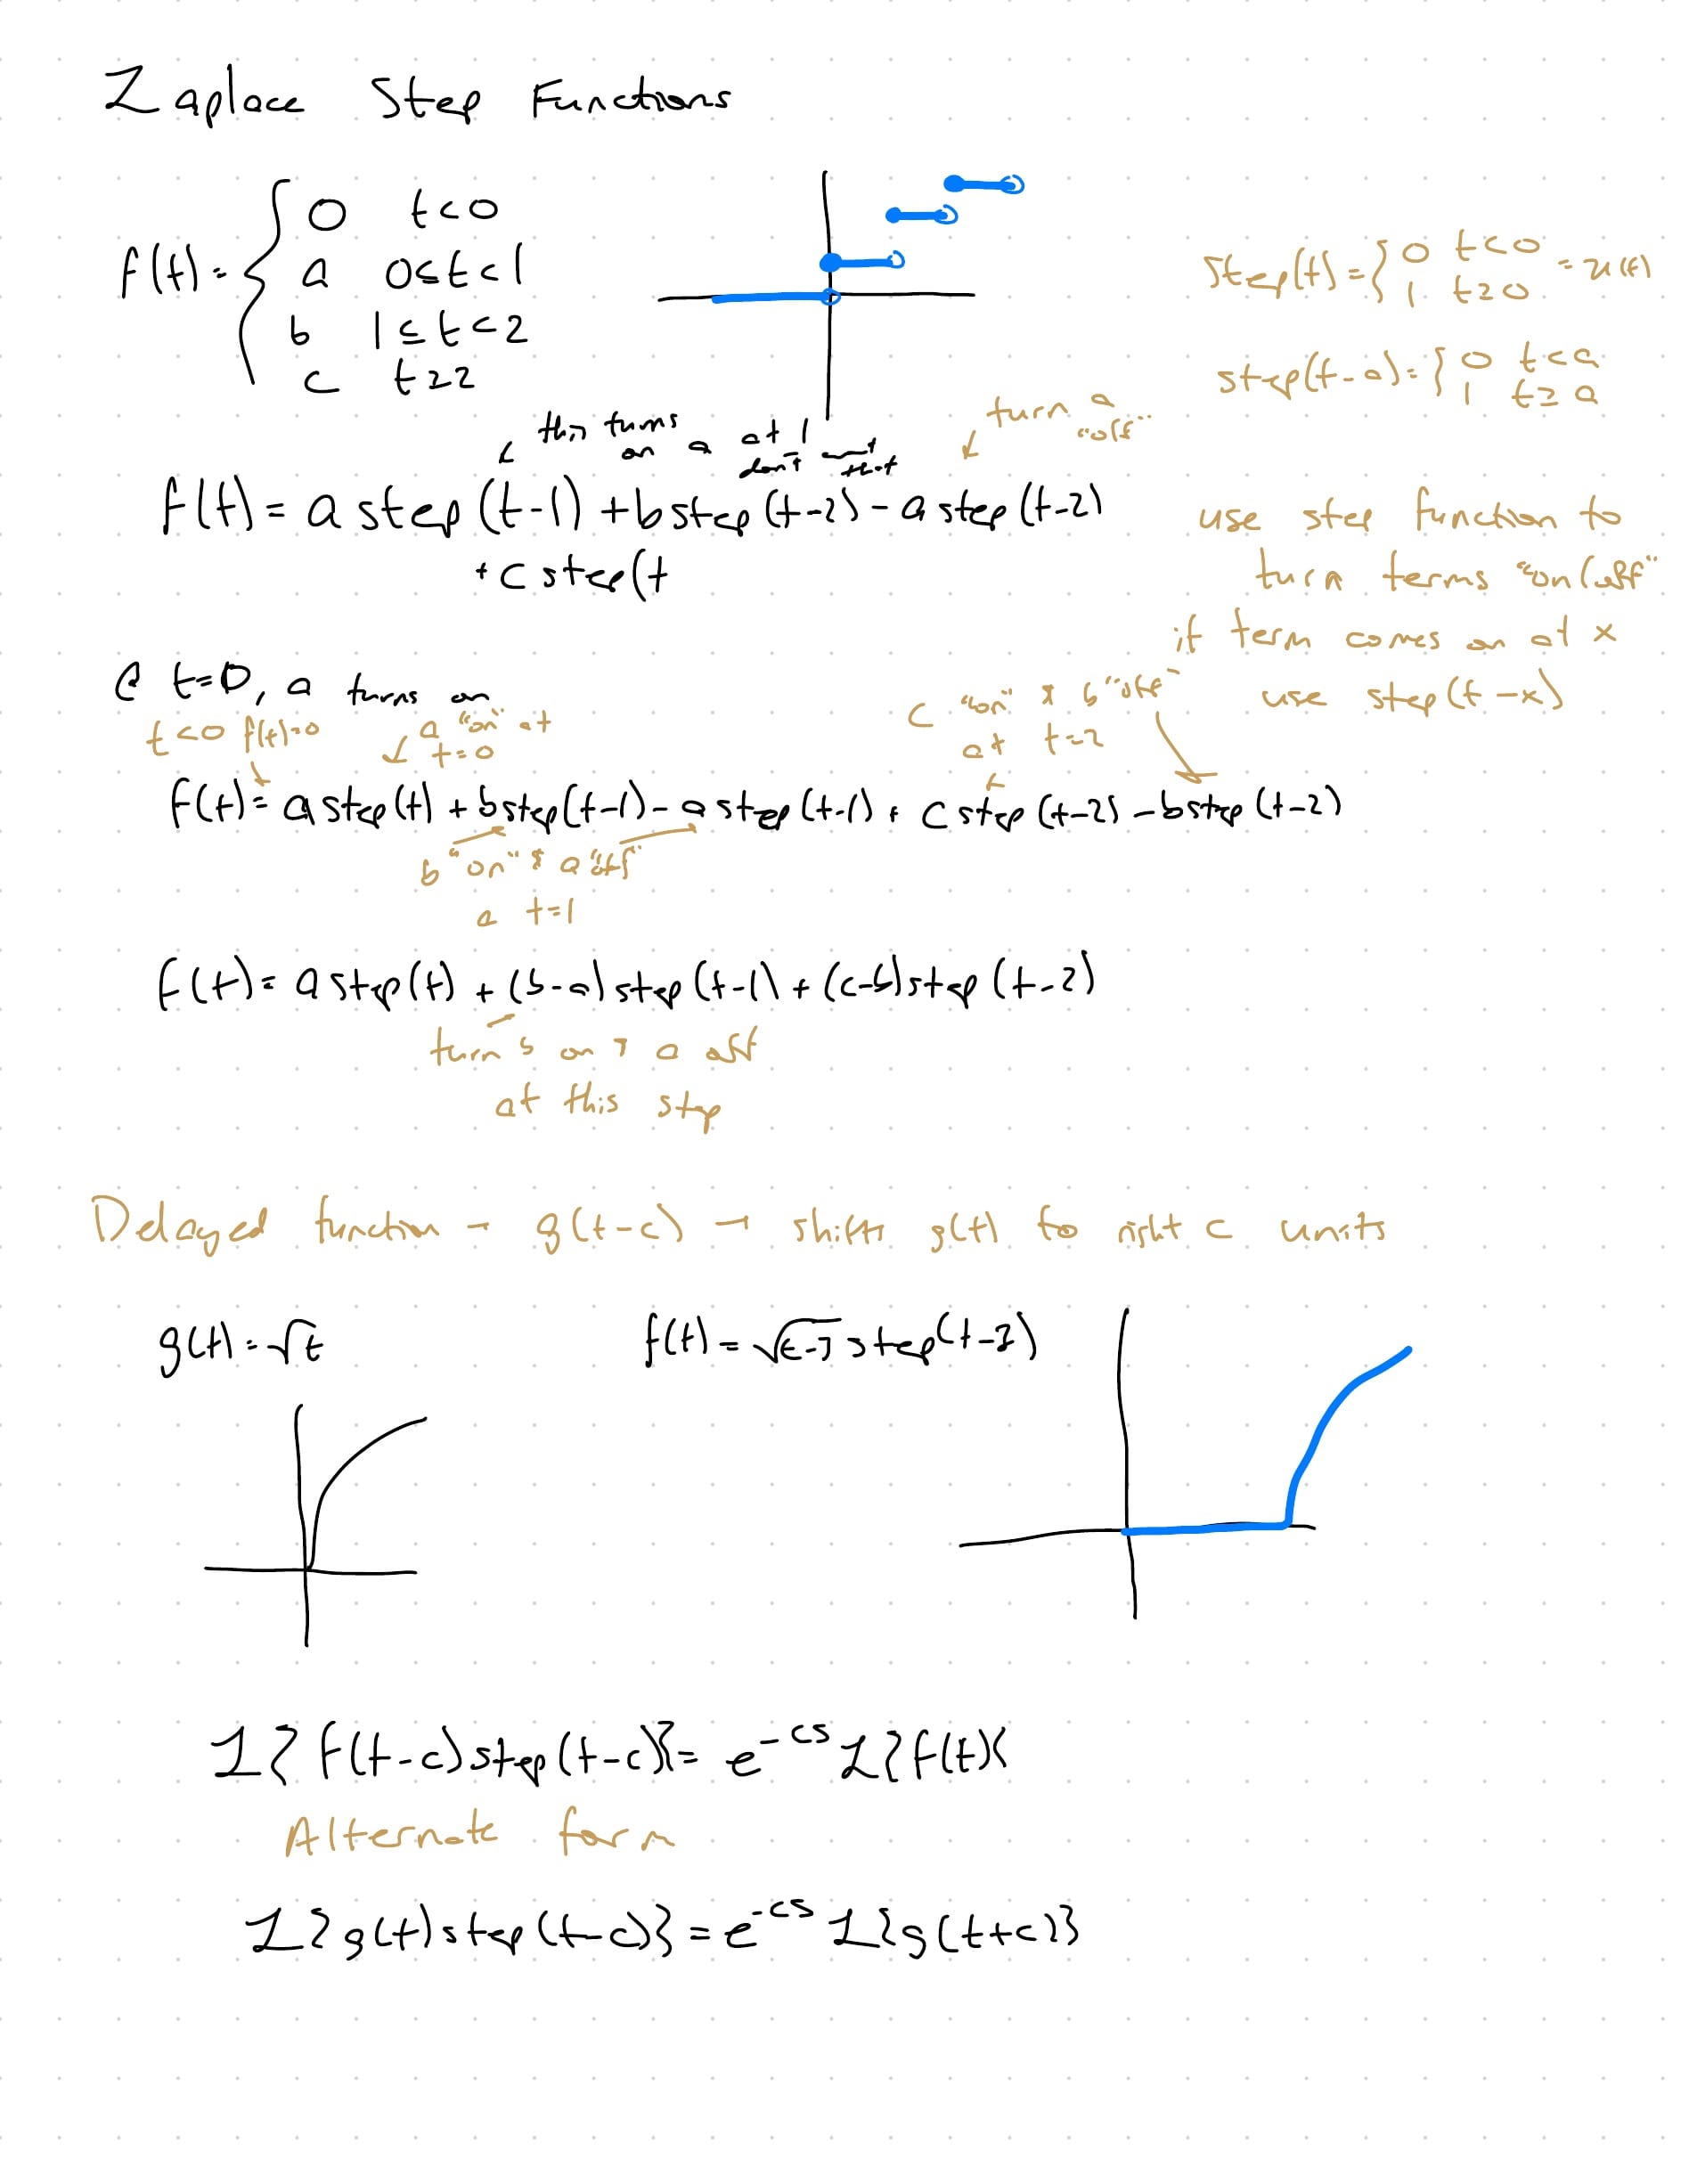 Laplace Step Functions
f(t) = { 0 t<0
a 0≤t<1
b 1≤t<2
c t≥2
step(t) = { 0 t<0 = u(t)
1 t≥0
step(t-a) = { 0 t<a
1 t≥a
this turns on a at 1
don't want that
turn a "off"
f(t) = a step(t-1) + b step(t-2) - a step(t-2)
+ c step(t
use step function to
turn terms "on/off"
if term comes on at x
use step(t-x)
@ t=0, a turns on
t<0 f(t)=0
a "on" at
t=0
c "on" & b "off"
at t=2
f(t) = a step(t) + b step(t-1) - a step(t-1) + c step(t-2) - b step(t-2)
b "on" & a "off"
a t=1
f(t) = a step(t) + (b-a) step(t-1) + (c-b) step(t-2)
turn b on & a off
at this step
Delayed function → g(t-c) → shifts g(t) to right c units
g(t) = √t
f(t) = √t-3 step(t-3)
L{f(t-c) step(t-c)} = e^-cs L{f(t)}
Alternate form
L{g(t) step(t-c)} = e^-cs L{g(t+c)}